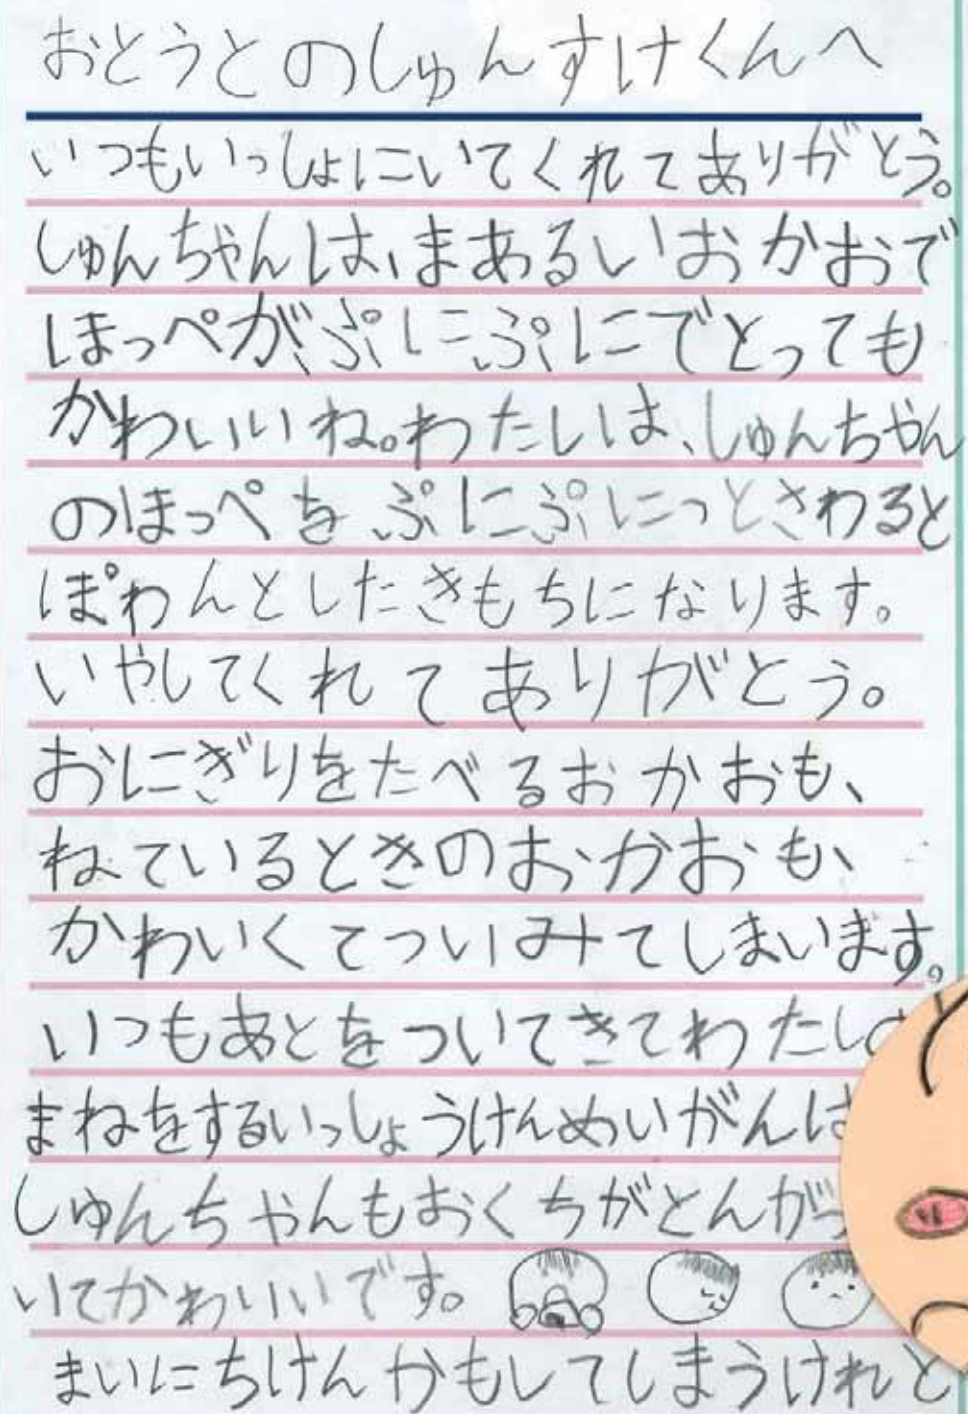 おとうとのしゅんすけくんへ
いつもいっしょにいてくれてありがとう。
しゅんちゃんは、まあるいおかおで
ほっぺが、ぷにぷにでとっても
かわいいね。わたしは、しゅんちゃん
のほっぺを、ぷにぷにっとさわると
ぽわんとしたきもちになります。
いやしてくれてありがとう。
おにぎりをたべるおかおも、
ねているときのおかおも、
かわいくてついみてしまいます。
いつもあとをついてきてわたし
まねをするいっしょうけんめいがん
しゅんちゃんもおくちがとんが
いてかわいいです。
まいにちけんかもしてしまうけれど